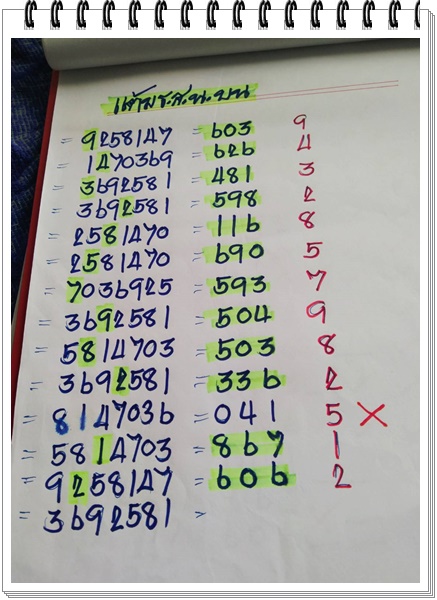 บน
= 9258147 = 603 9
= 1470369 = 626 4
= 3692581 = 481 3
= 3692581 = 598 2
= 2581470 = 116 8
= 2581470 = 690 5
= 7036925 = 593 7
= 3692581 = 504 9
= 5814703 = 503 8
= 3692581 = 336 2
= 8147036 = 041 5 ×
= 5814703 = 867 1
= 9258147 = 606 2
= 3692581 =